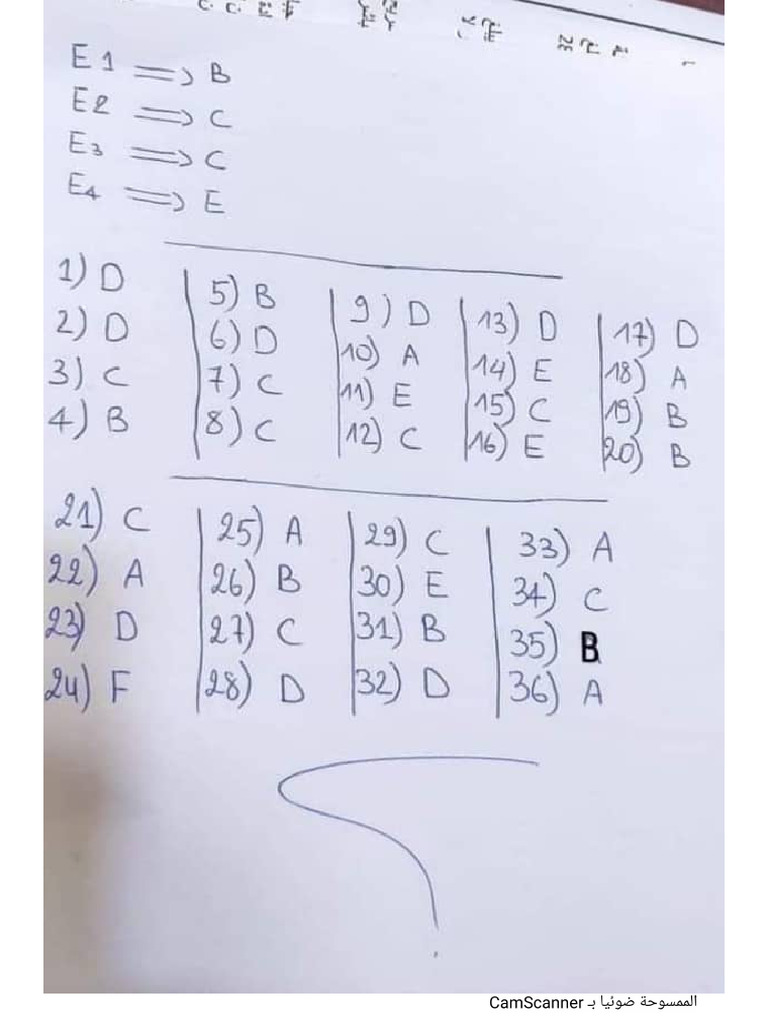 E1 => B
E2 => C
E3 => C
E4 => E
1) D
2) D
3) C
4) B
5) B
6) D
7) C
8) C
9) D
10) A
11) E
12) C
13) D
14) E
15) C
16) E
17) D
18) A
19) B
20) B
21) C
22) A
23) D
24) F
25) A
26) B
27) C
28) D
29) C
30) E
31) B
32) D
33) A
34) C
35) B
36) A
الممسوحة ضوئيا بـ CamScanner